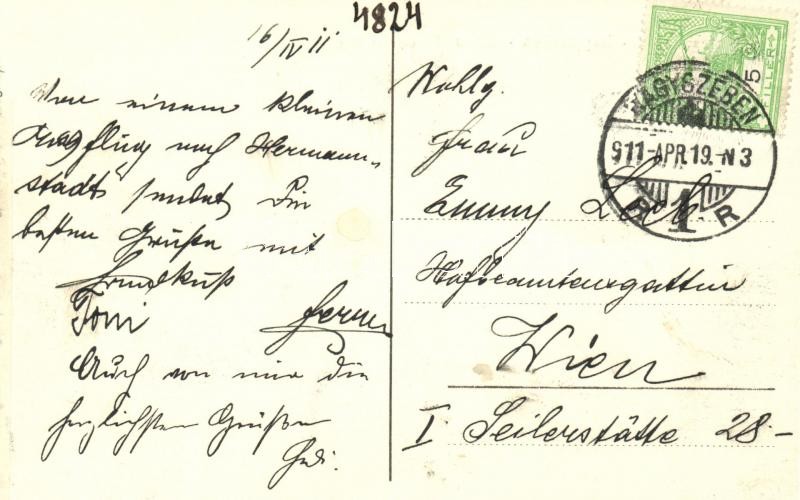 4824
16/IV 11
Von einem kleinen
Ausflug nach Hermann-
stadt sendet die
besten Grüße mit
Handkuß
Toni
Auch von mir die
herzlichsten Grüße
Hedi.
Wohlg.
Frau
Emmy
Hofbeamtensgattin
Wien
I Seilerstätte 28-
NAGYSZEBEN
911-APR.19.-N3
1
R
5
FILLER